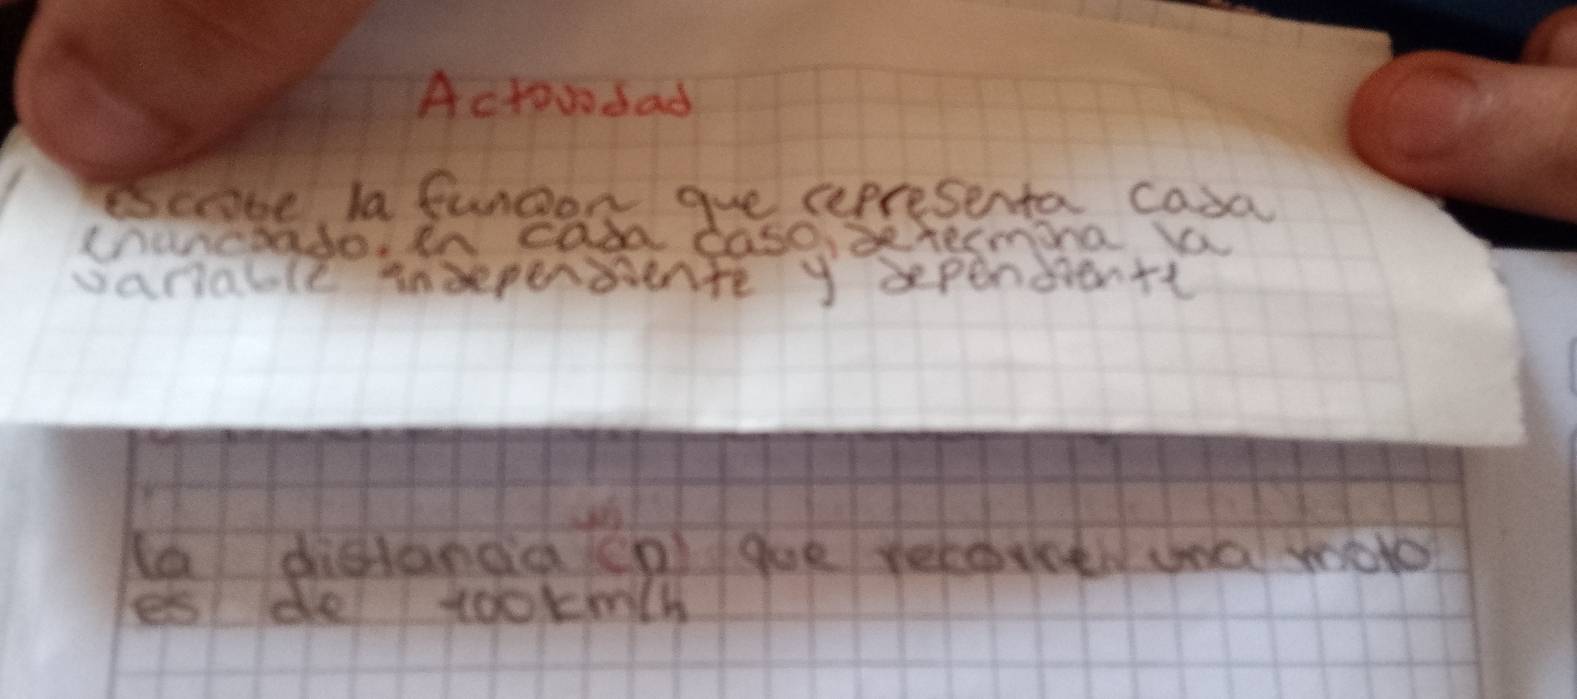 Actividad
escribe la función que representa cada
enunciado. en cada caso, determina la
variable independiente y dependiente
la distancia (D) que recorre una moto
es de 100km/h